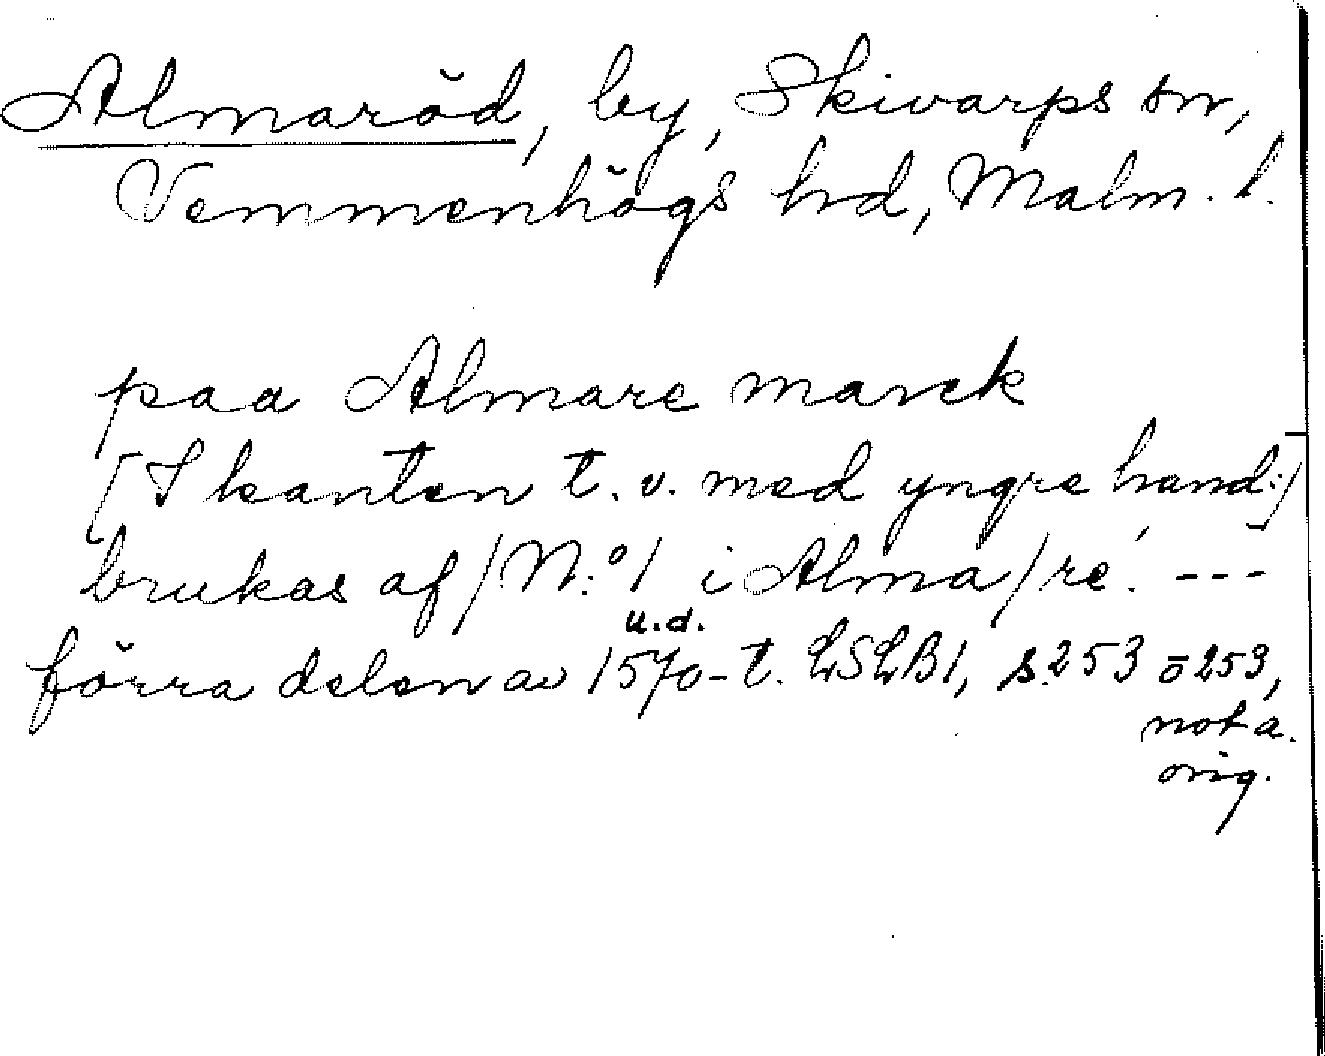 Almaröd, by, Skivarps sn,
Vemmenhögs hd, Malm. l.
paa Almare marck
[I kanten t. v. med yngre hand:]
brukas af/N:o 1 i Alma/ré. ---
u.d.
förra delen av 1570-t. LSLB1, s.253 o 253,
not a.
orig.